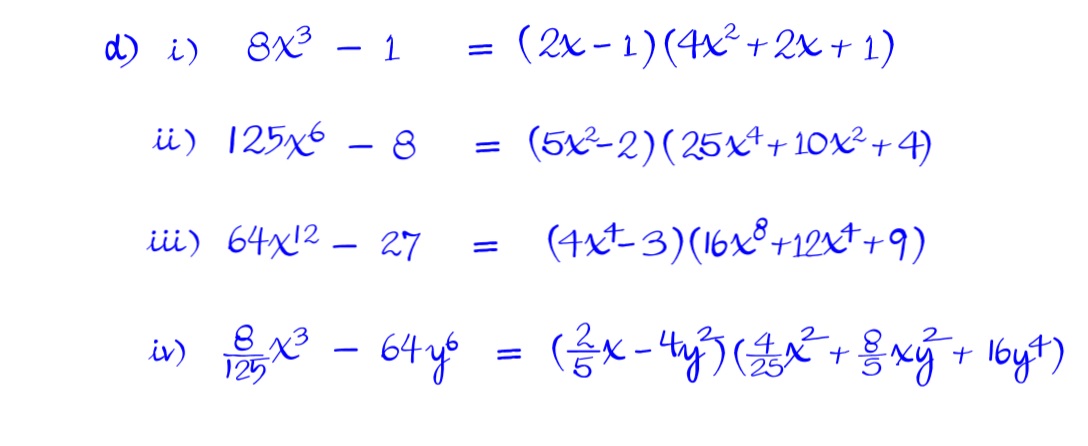 d) i) 8x³ - 1 = (2x - 1)(4x² + 2x + 1)
ii) 125x⁶ - 8 = (5x² - 2)(25x⁴ + 10x² + 4)
iii) 64x¹² - 27 = (4x⁴ - 3)(16x⁸ + 12x⁴ + 9)
iv) 8/125 x³ - 64y⁶ = (2/5 x - 4y²)(4/25 x² + 8/5 xy² + 16y⁴)